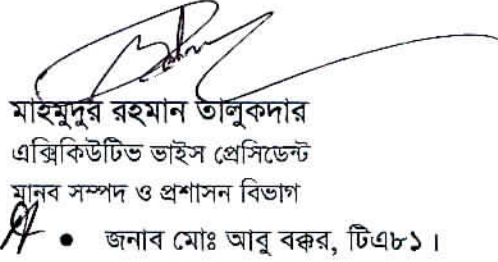 মাহমুদুর রহমান তালুকদার
এক্সিকিউটিভ ভাইস প্রেসিডেন্ট
মানব সম্পদ ও প্রশাসন বিভাগ
• জনাব মোঃ আবু বক্কর, টিএ৮১।